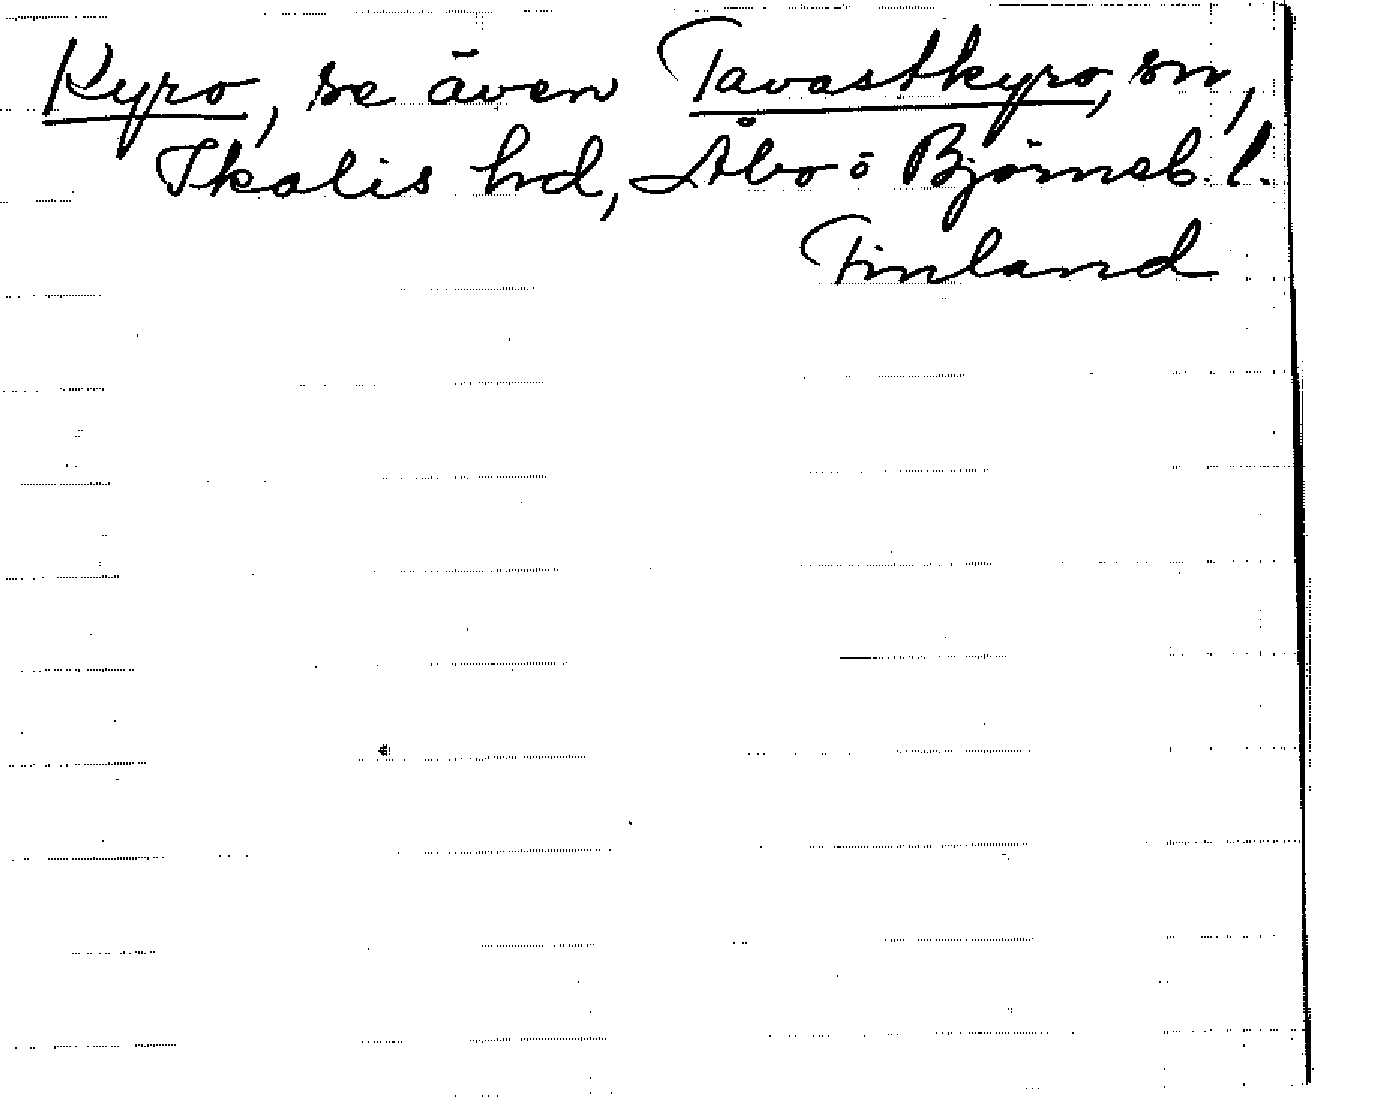 Kyro, se även Tavastkyro, sn,
Ikalis hd, Åbo o Björneb. l.
Finland